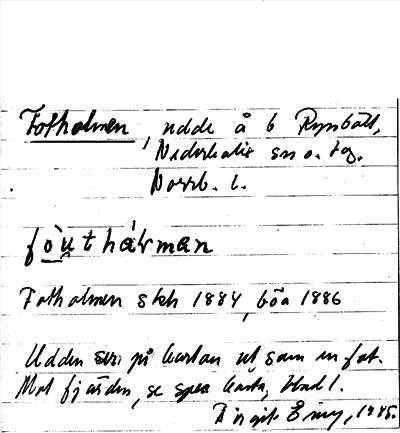 Fotholmen, udde å b Rynbäck,
Nederkalix sn o. tg.
Norrb. l.
fòu̠thál'man
Fotholmen skh 1884, böa 1886
Udden ser på kartan ut som en fot.
Mot fjärden, se spec karta, blad 1.
Birgit Eriny, 1985.